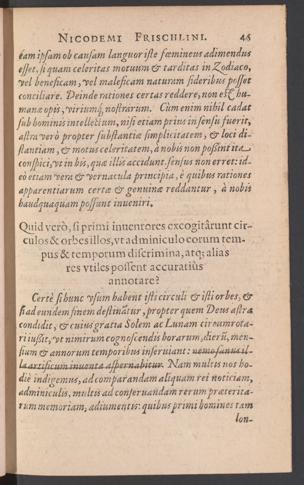 NICODEMI FRISCHLINI. 45
eam ipsam ob causam languor iste fœmineus adimendus
esset, si quam celeritas motuum & tarditas in Zodiaco,
vel beneficam, vel maleficam naturam sideribus posset
conciliare. Deinde rationes certas reddere, non est hu-
manæ opis, viriumq́; nostrarum. Cùm enim nihil cadat
sub hominis intellectum, nisi etiam prius in sensu fuerit,
astra verò propter substantiæ simplicitatem, & loci di-
stantiam, & motus celeritatem, à nobis non possint ita
conspici, vt in bis, quæ illis accidunt sensus non erret: id-
eò etiam vera & vernacula principia, è quibus rationes
apparentiarum certæ & genuinæ reddantur, à nobis
haudquaquam possunt inueniri.
Quid verò, si primi inuentores excogitârunt cir-
culos & orbes illos, vt adminiculo eorum tem-
pus & temporum discrimina, atq; alias
res vtiles possent accuratiùs
annotare?
Certè si hunc vsum habent isti circuli & isti orbes, &
si ad eundem finem destinâtur, propter quem Deus astra
condidit, & cuius gratia Solem ac Lunam circumrota-
ri iußit, vt nimirum cognoscendis horarum, dierũ, men-
sium & annorum temporibus inseruiant: nemo sanus il-
la artificum inuenta aspernabitur. Nam multis nos ho-
diè indigemus, ad comparandam aliquam rei noticiam,
adminiculis, multis ad conseruandam rerum præterita-
rum memoriam, adiumentis: quibus primi homines tam
lon-